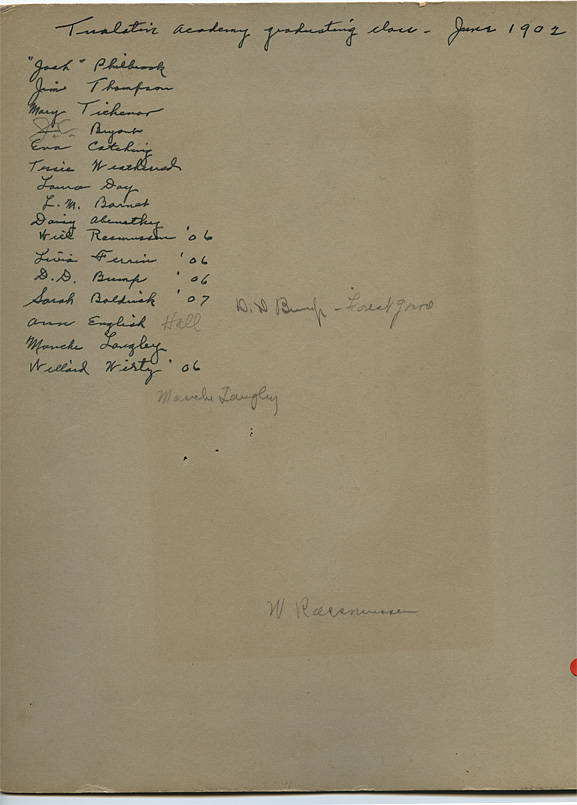 Tualatin Academy graduating class - June 1902
"Josh" Philbrook
Jim Thompson
Mary Tichenor
J.C. Bryant
Eva Catching
Tessie Weathered
Laura Day
L. M. Barnet
Daisy Abernethy
Will Rasmussen '06
Livia Ferrin '06
D.D. Bump '06
Sarah Boldrick '07
Anna English Hall
Manche Langley
Willard Wirtz '06
D. D Bump - Forest Grove
Manche Langley
W Rasmussen